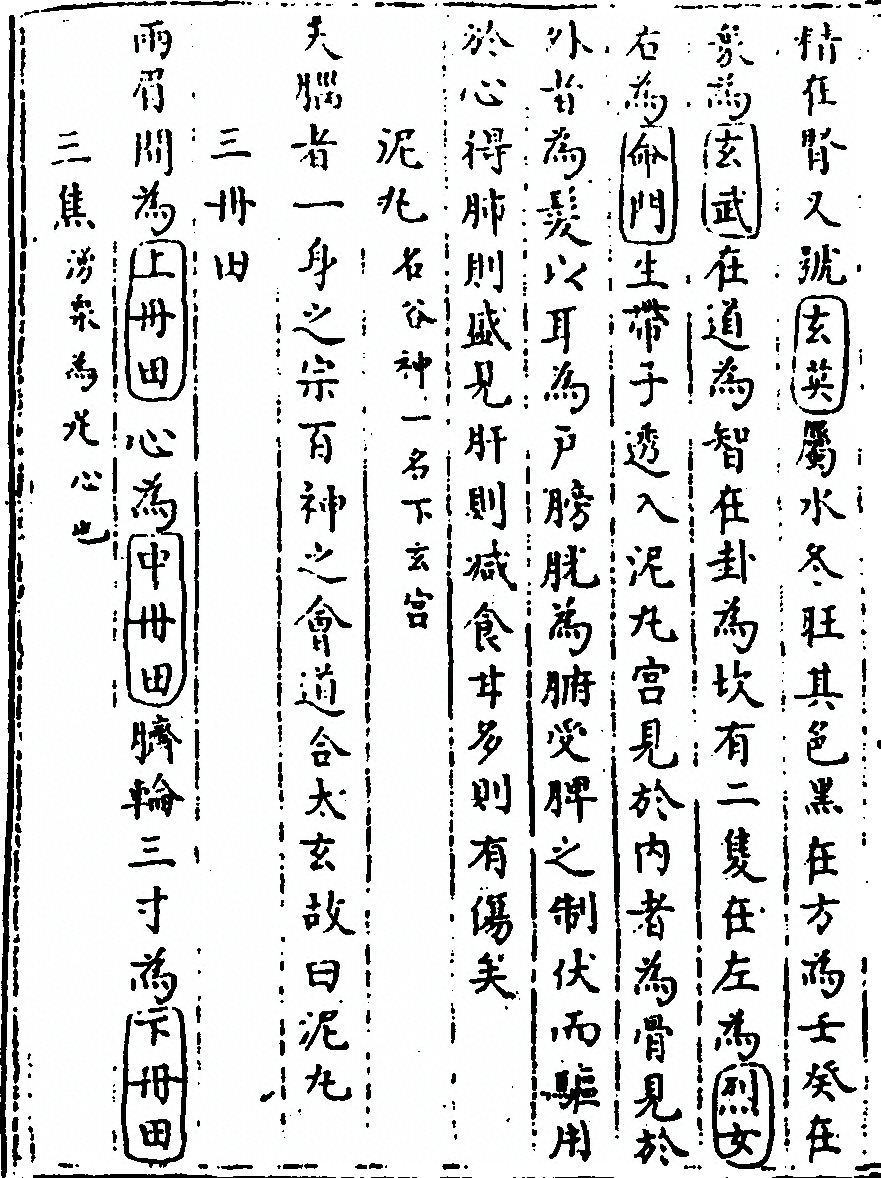 精在腎又號玄英屬水冬旺其色黑在方為壬癸在
象為玄武在道為智在卦為坎有二隻在左為烈女
右為命門生帶子透入泥丸宮見於內者為骨見於
外者為髮以耳為戶膀胱為腑受脾之制伏而驅用
於心得肺則盛見肝則减食甘多則有傷矣
泥丸 名谷神一名下玄宮
夫腦者一身之宗百神之會道合太玄故曰泥丸
三冊田
兩眉間為上冊田心為中冊田臍輪三寸為下冊田
三焦 湧泉為冲心也